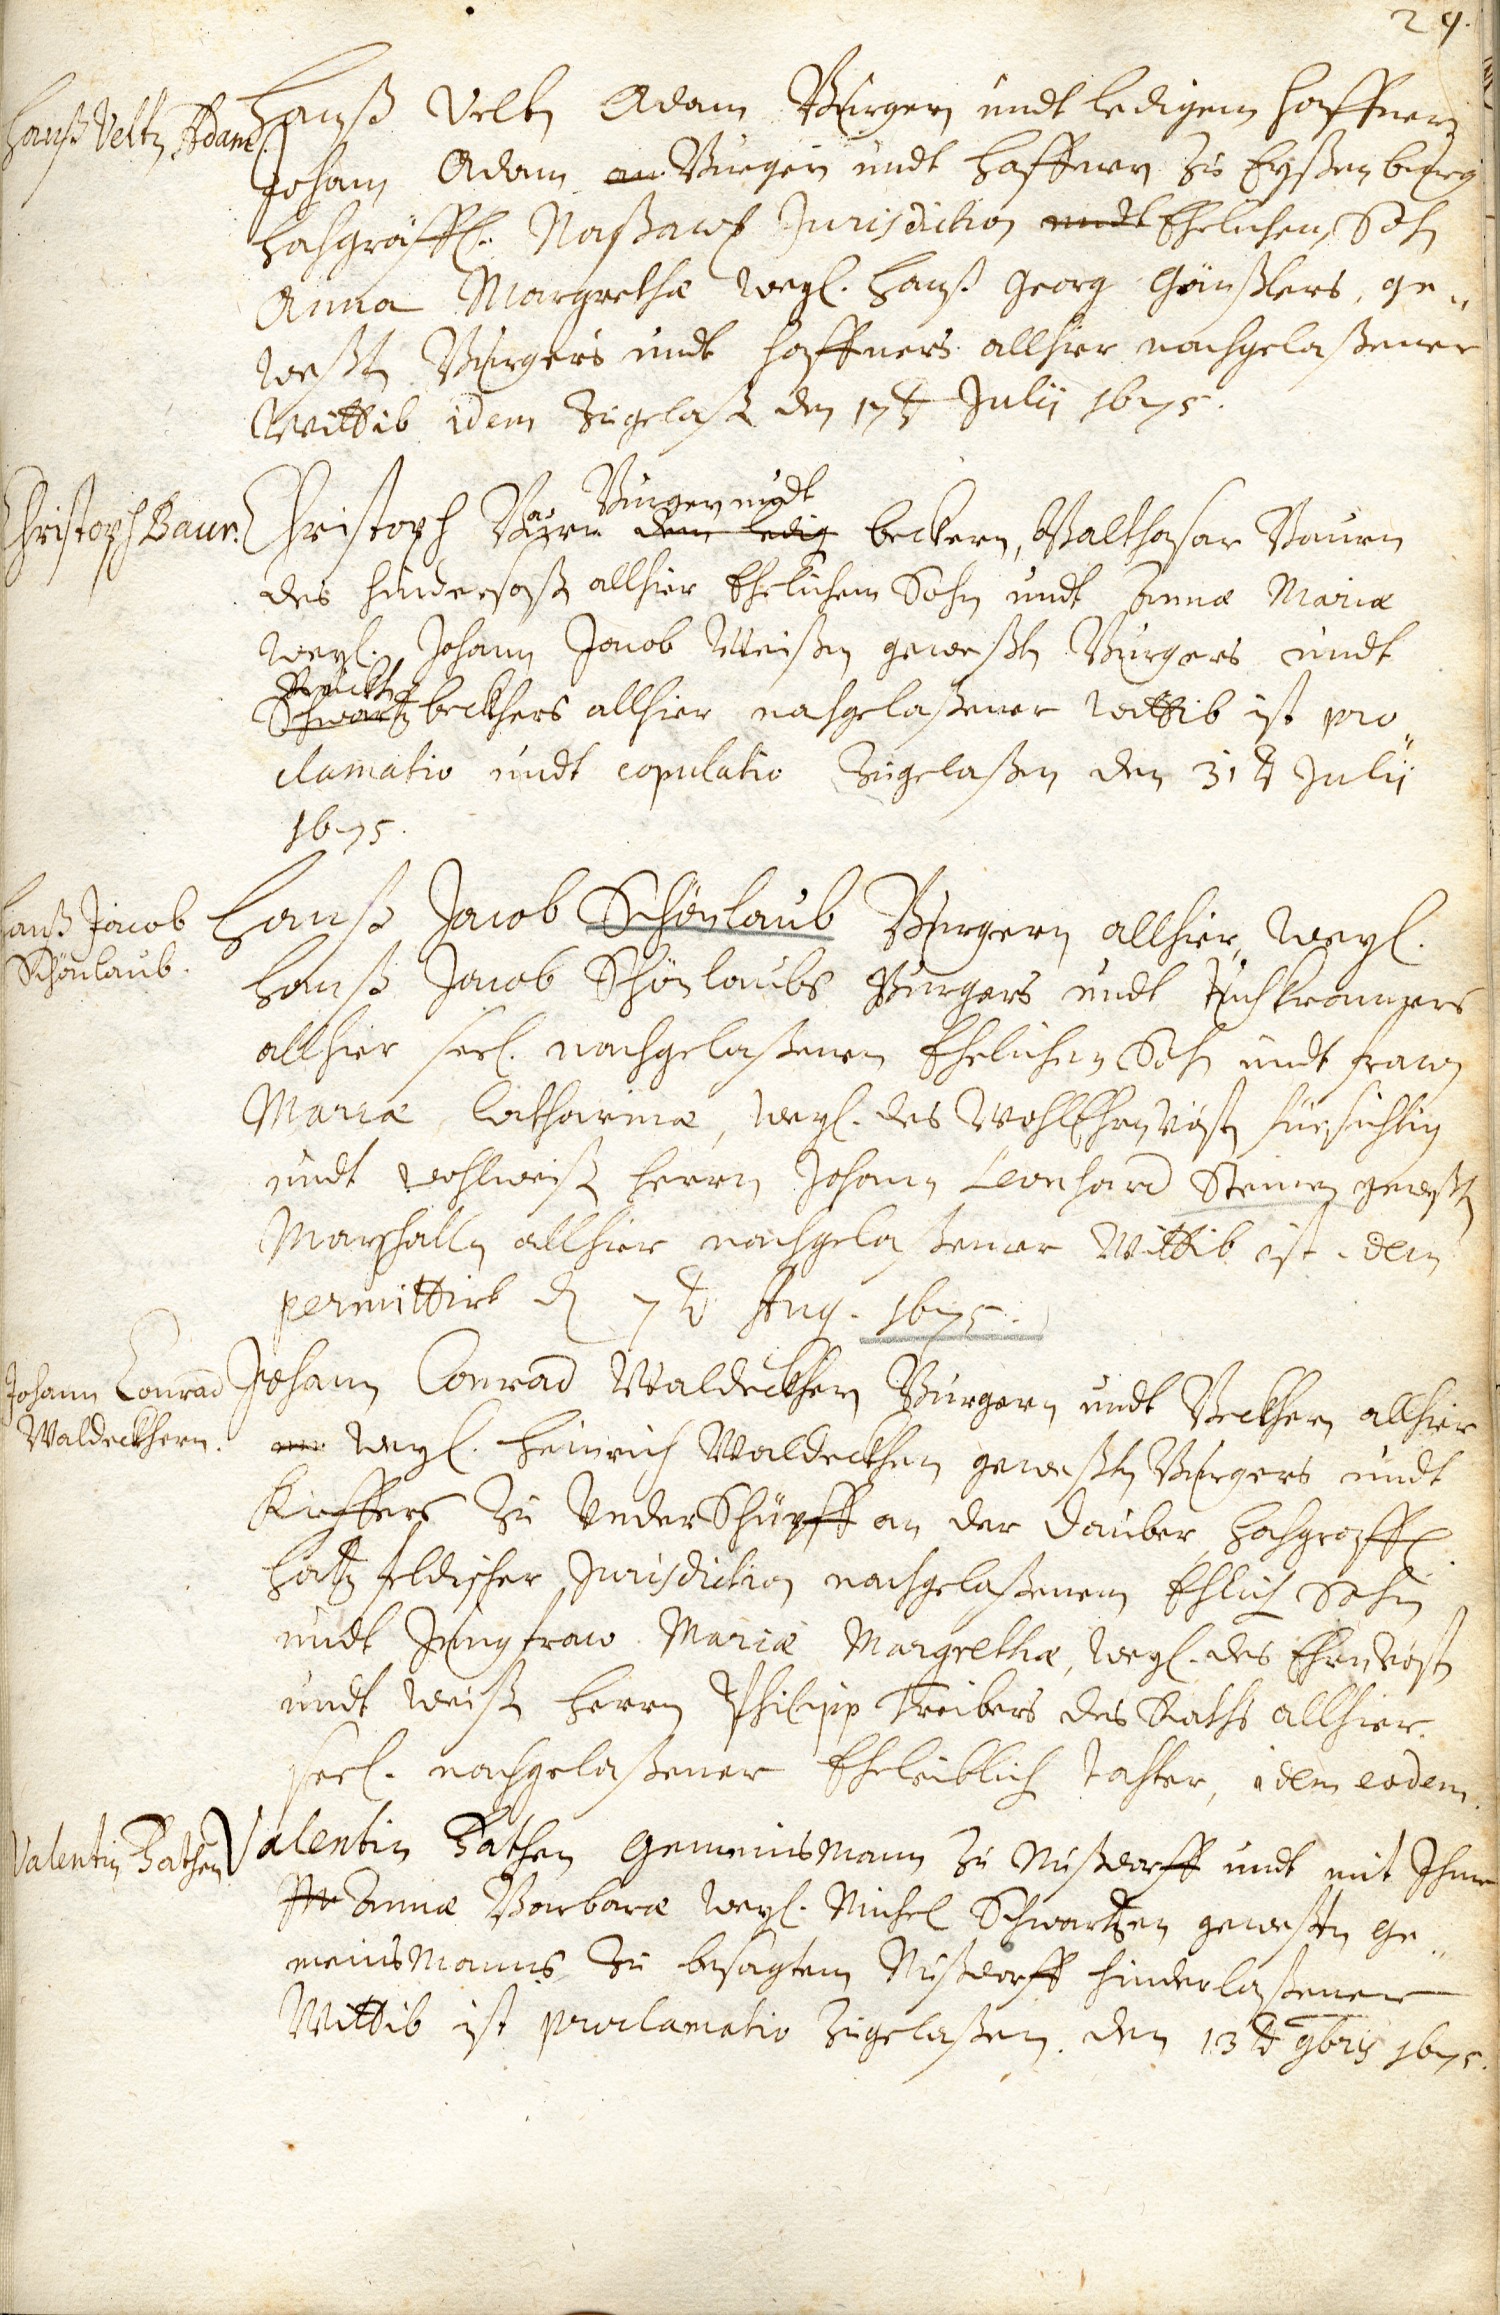 29.
Hanß Veltn Adam.
Hanß Veltn Adam Burgern undt ledigem Haffnern
Johann Adam Burgern undt Haffnern zu Eyßenberg
Hochgräffl. Naßawl Jurisdiction undt Ehelichen Sohn
Anna Margrethæ weyl. Hanß Georg Gänßlers, ge„
weßt Burgers undt Haffners allhier nachgelaßener
Wittib idem zugelaß den 17t Julij 1675.
Christoph Baur.
Burgern undt
Christoph Baurn dem ledig beckern, Balthasar Baurn
des hindersaß allhier Ehelichem Sohn undt Annæ Mariæ
weyl. Johann Jacob Weißen geweßtn Burgers undt
Schwartz beckhers allhier nachgelaßener Wittib ist pro„
clamatio undt copulatio zugelaßen den 31t Julij
1675.
Hanß Jacob
Schönlaub.
Hanß Jacob Schönlaub Burgern allhier, weyl.
Hanß Jacob Schönlaubs Burgers undt Tuchkramers
allhier seel. nachgelaßenen Ehelichen Sohn undt frawn
Mariæ Catharinæ, weyl. des WohlEhrnvöst fürsichtig
undt wohlweiß herrn Johann Leonhard Steinen geweßtn
Marschalln allhier nachgelaßener Wittib ist idem
permittirt d 7t Aug. 1675.
Johann Conrad
Waldeckhern.
Johann Conrad Waldeckhern Burgern undt Beckhern allhier
weyl. Heinrich Waldeckhen geweßtn Burgers undt
Kieffers zu UnderSchüpff an der Dauber, hochgräffl
Hatzfeldischer Jurisdiction nachgelaßenem Ehlich Sohn
undt Jungfraw Mariæ Margrethæ, weyl. des Ehrnvöst
undt weiß herrn Philipp Treibers des Raths allhier
seel. nachgelaßener Eheleiblich Tochter, idem eodem.
Valentin Bathen
Valentin Bathen Gemeinsmann zu Nußdorff undt mit Ihme
Annæ Barbaræ weyl. Michel Schwartzen geweßtn Ge„
meinsmanns zu besagtem Nußdorff hinderlaßener
Wittib ist proclamatio zugelaßen. den 13t 9bris 1675.